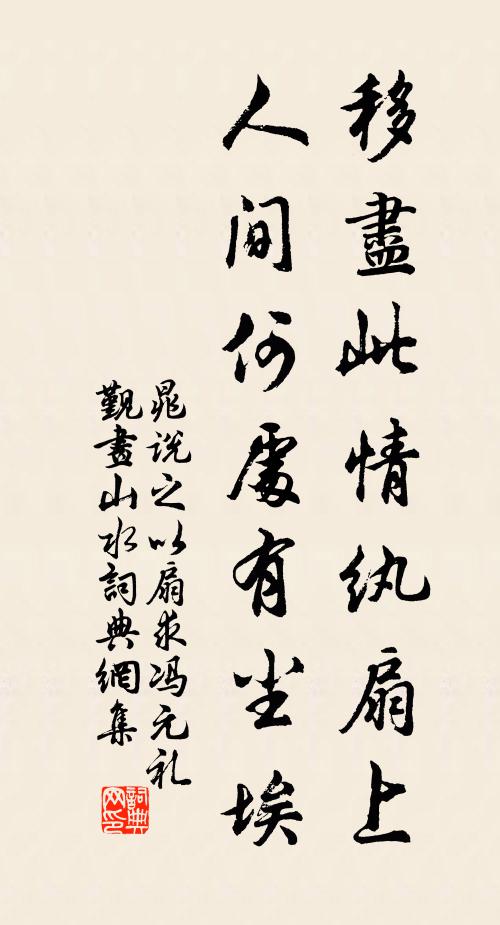 移盡此情紈扇上
人間何處有尘埃
晁說之以扇求冯元礼
觐畫山水詞典網集
詞典网印